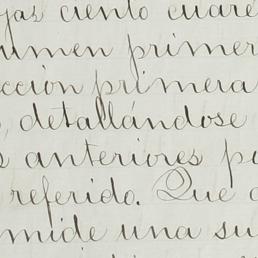 jas ciento cuare
umen primer
cción primera
, detallándose
s anteriores po
referido. Que
mide una su